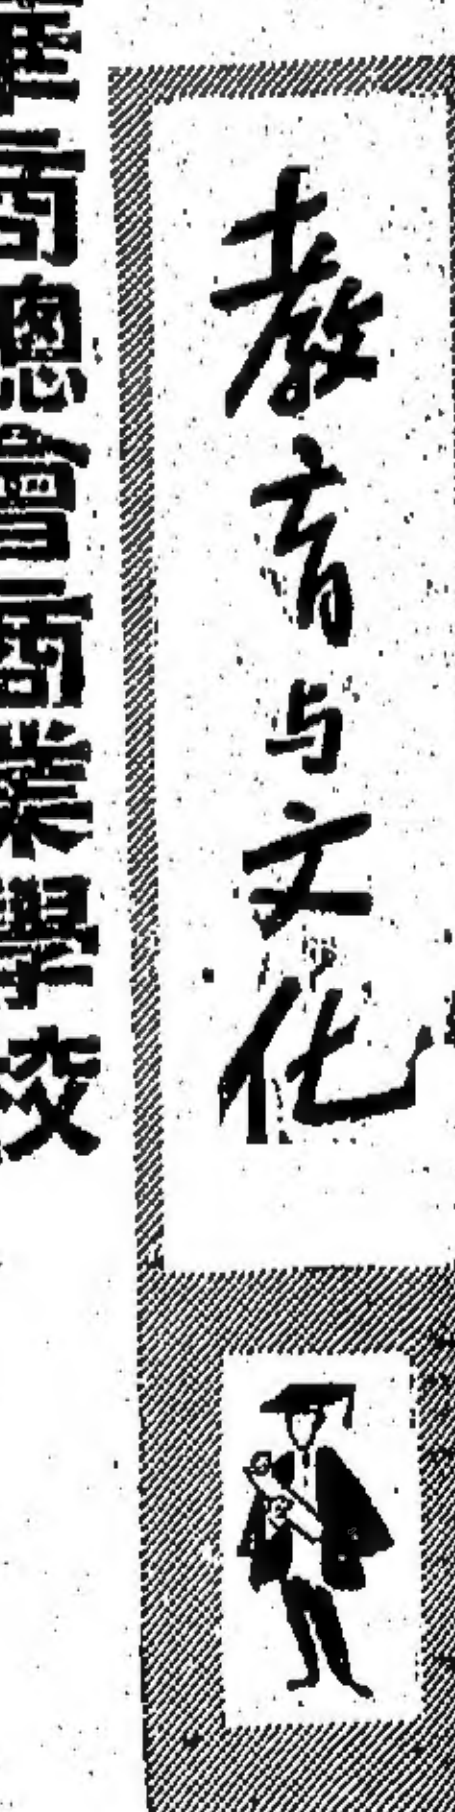 教育与文化
華商總會商業學校